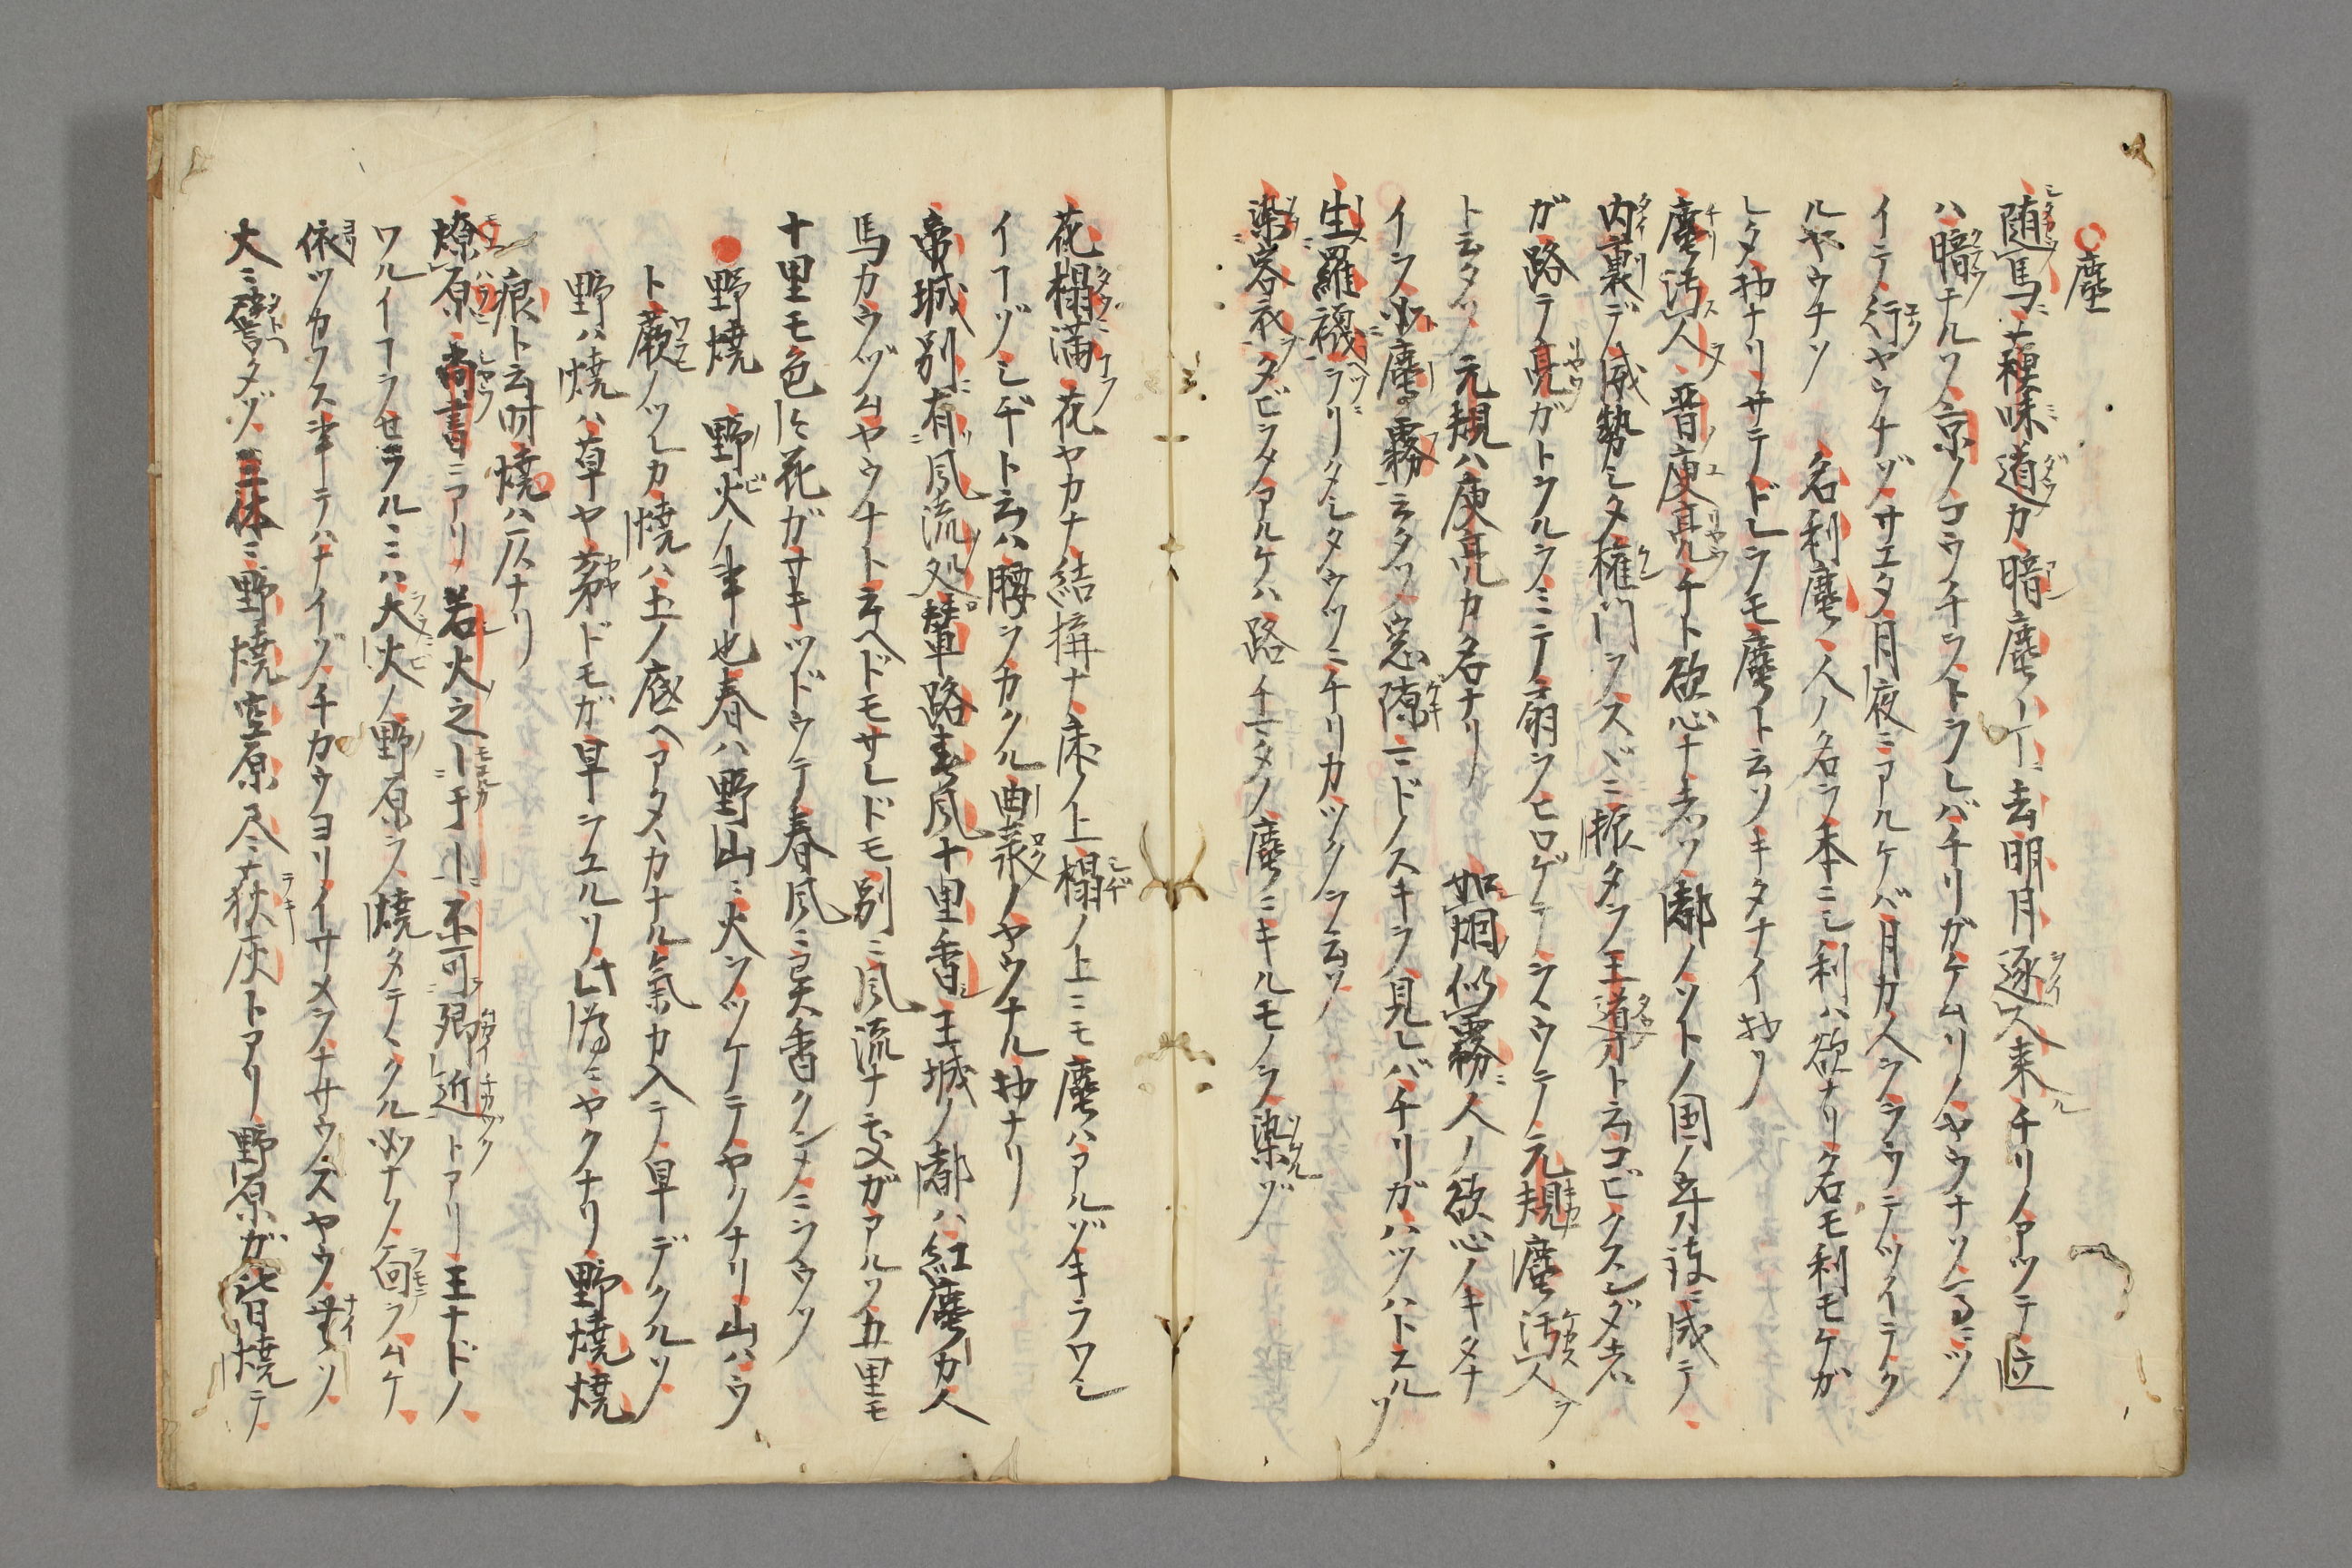 塵
随馬 蘇味道カ暗塵ノ—去明月逐人来チリノアツテ立
ハ暗ナルソ京ノコウチラトヲレバチリガケムリノヤウナソ
イテ行ヤウナゾサエタ月夜ニアルケバ月カ人ヲヲウテツイテク
ルヤウナソ 名利塵 人ノ名ヲ本ニシ利ハ欲ナリ名モ利モケガ
レタ物ナリサテドレヲモ塵ト云ソキタナイ物ソ
塵汚人 晋庾亮チト欲心ナ者ソ都ノソトノ国ノ守護ニ成テ
内裏デ威勢シタ権門ヲスヾニ振タソ王道ト云コビクスンダ者
ガ路テ亮ガトヲルヲミテ扇ヲヒロゲテヲヽウテ元規塵汚人ヲ
ト云タソ元規ハ庾亮カ名ナリ 如烟似霧 人ノ欲心ノキタナ
イヲ 塵霧ニ云タソ窓隙 マドノスキヲ見レバチリガハツハトスルソ
生羅襪 ヲリタシタウツニチリカツクヲ云ソ
染客衣 タビヲメアルケハ路チマタノ塵ニキルモノヲ染ソ
花榻満 花ヤカナ結搆ナ床ノ上榻ノ上ニモ塵ハアルゾキラワシ
イコーゾシヂト云ハ腰ヲカクル曲彔ノヤウナル物ナリ
帝城別有風流処輦路春風十里香 王城ノ都ハ紅塵カ人
馬カウヅムヤウナト云ヘドモサレドモ別ニ風流ナ支ガアルソ五里モ
十里モ色々花ガサキツドウテ春風ニ臭香クンメニヲウソ
野焼 野火ノ事也春ハ野山ニ火ヲツケテヤクナリ山ハウ
ト蕨ノツレカ焼ハ土ノ底ヘアタヽカナル氣カ入テ早デクルソ
野ハ焼ハ草ヤ茅ドモガ早シユルソ此為ニヤクナリ野焼焼
痕ト云時焼ハ仄ナリ
燎原 尚書ニアリ若火之—于—不可郷近トアリ王ナドノ
ワルイコーヲせラルヽハ大火ノ野原ヲ焼タテヽクル ナソ向ヲムケ
依ツカワス事テハナイゾチカウヨリイサメヲナサウズヤウソ無ソ
大ニ譬タゾ 三体ニ野焼空原尽荻灰トアリ野原ガ皆焼テ